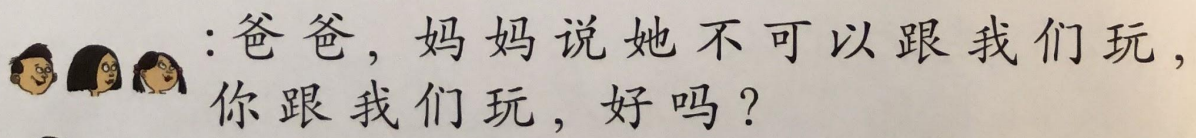 ：爸爸，妈妈说她不可以跟我们玩，
你跟我们玩，好吗？